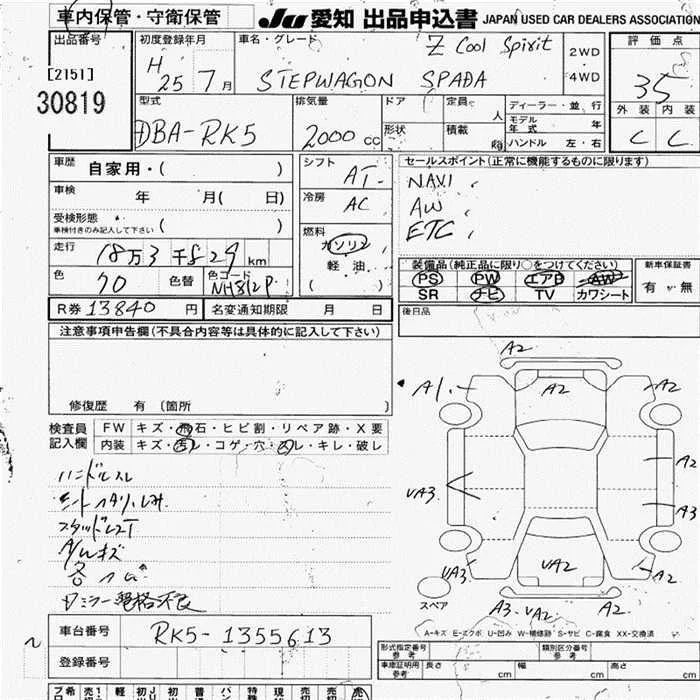 車内保管・守衛保管
JU 愛知 出品申込書 JAPAN USED CAR DEALERS ASSOCIATION
出品番号
[2151]
30819
初度登録年月
H 25 7 月
車名・グレード
Z Cool Spirit
STEPWAGON SPADA
2WD
4WD
評価点
35
外装 内装
C C
型式
DBA-RK5
排気量
2000 cc
ドア
形状
定員 人
積載 kg
ディーラー・並行
モデル年式 年
ハンドル 左・右
車歴 自家用・( )
車検 年 月( 日)
受検形態
車検付きのみ記入して下さい ( )
走行 18万3千829 km
色 70 色替
色コード
NH812P
シフト AT
冷房 AC
燃料
ガソリン
軽油
( )
セールスポイント(正常に機能するものに限ります)
NAVI
AW
ETC
装備品(純正品に限り○をつけてください)
PS PW エアB AW
SR ナビ TV カワシート
新車保証書
有・無
R券 13840 円 名変通知期限 月 日
後日品
注意事項申告欄(不具合内容等は具体的に記入して下さい)
修復歴 有 (箇所 )
検査員
記入欄
FW キズ・飛石・ヒビ割・リペア跡・X要
内装 キズ・汚レ・コゲ・穴・スレ・キレ・破レ
ハンドルスレ
A/Wキズ
A2
A1 A2 A2
A2
UA3
A3
UA3 UA2 A2
スペア
A3 UA2 A2
A-キズ E-エクボ U-凹み W-補修跡 S-サビ C-腐食 XX-交換済
車台番号 RK5-1355613
登録番号
形式指定番号
参考
類別区分番号
参考
車庫証明用
参考
長さ cm 幅 cm 高さ cm